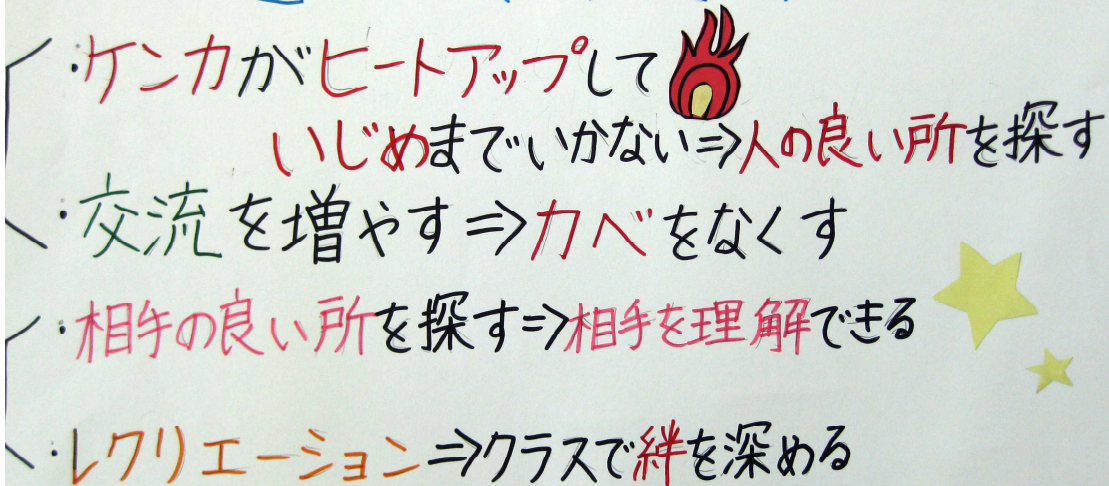 ・ケンカがヒートアップして
いじめまでいかない⇒人の良い所を探す
・交流を増やす⇒カベをなくす
・相手の良い所を探す⇒相手を理解できる
・レクリエーション⇒クラスで絆を深める